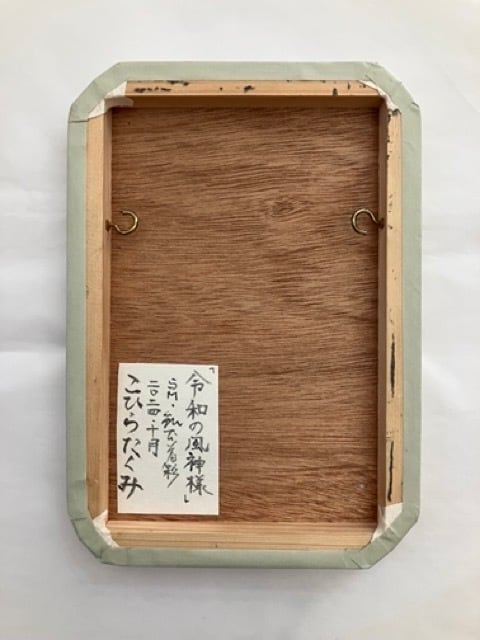 「令和の風神様」
SM・紙本着彩
二〇二四・十月
こひらたくみ